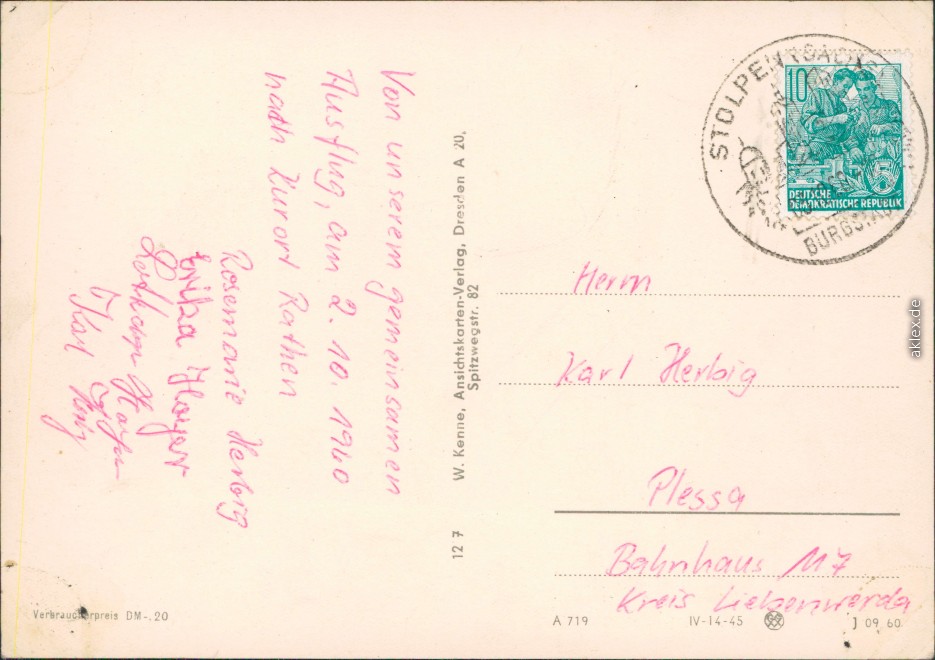 Von unserem gemeinsamen
Ausflug, am 2. 10. 1960
nach Kurort Rathen
Rosemarie Herbig
Erika Hoyer
Lothar
Karl
W. Kenne, Ansichtskarten-Verlag, Dresden A 20,
Spitzwegstr. 82
12 7
Verbraucherpreis DM -.20
STOLPEN (SACHS)
BURGSTADT
10
5
DEUTSCHE
DEMOKRATISCHE REPUBLIK
Herrn
Karl Herbig
Plessa
Bahnhaus 117
Kreis Liebenwerda
A 719
IV-14-45
J 09 60
aklex.de